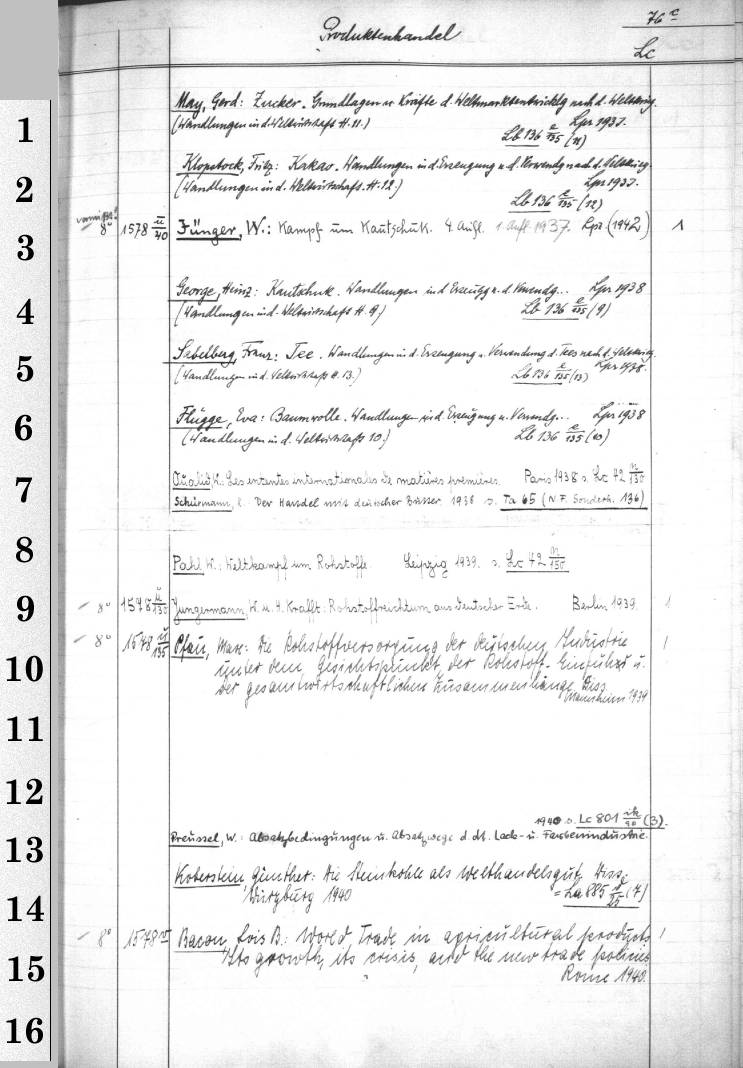 76c
Produktenhandel
Lc
1
May, Gerd: Zucker. Grundlagen u. Kräfte d. Weltmarktentwicklg nach d. Weltkrieg.
(Wandlungen in d. Weltwirtschaft H. 11.) Lpz 1937.
Lb 136 e/135 (11)
2
Klopstock, Fritz: Kakao. Wandlungen in d. Erzeugung u. d. Verwendg nach d. Weltkrieg.
(Wandlungen in d. Weltwirtschaft. H. 12.) Lpz 1937.
Lb 136 e/135 (12)
3
vermißt!
8° 1578 u/40 Jünger, W.: Kampf um Kautschuk. 4. Aufl. 1. Aufl. 1937. Lpz. (1942) 1
4
George, Heinz: Kautschuk. Wandlungen in d. Erzeugg u. d. Verwendg... Lpz 1938
(Wandlungen in d. Weltwirtschaft H. 9) Lb 136 e/135 (9)
5
Sabelberg, Franz: Tee. Wandlungen in d. Erzeugung u. Verwendung d. Tees nach d. Weltkrieg.
(Wandlungen in d. Weltwirtschaft H. 13.) Lpz 1938.
Lb 136 e/135 (13)
6
Flügge, Eva: Baumwolle. Wandlungen in d. Erzeugung u. Verwendg... Lpz 1938
(Wandlungen in d. Weltwirtschaft 10.) Lb 136 e/135 (10)
7
Oualid, : Les ententes internationales de matières premières. Paris 1938 s. Lc 72 n/130
Schürmann, : Der Handel mit deutscher Butter. 1938 s. Ta 65 (N.F. Sonderh. 136)
8
Pahl, W.: Weltkampf um Rohstoffe. Leipzig 1939. s. Lc 72 n/150
9
8° 1578 u/130 Jungermann, W. u. H. Krafft: Rohstoffreichtum aus deutscher Erde. Berlin 1939 1
10
8° 1578 u/135 Pfau, Max: Die Rohstoffversorgung der deutschen Industrie 1
unter dem Gesichtspunkt der Rohstoff-Einfuhr u.
der gesamtwirtschaftlichen Zusammenhänge. Diss.
Mannheim 1939
11
12
1940 s. Lc 801 ik/90 (3).
13
Preussel, W.: Absatzbedingungen u. Absatzwege d. dt. Lack- u. Farbenindustrie.
14
Koberstein, Günther: Die Steinkohle als Welthandelsgut. Diss.
Würzburg 1940 = La 885 /25 (7)
15
8° 1578 w Bacon, Lois B.: World Trade in agricultural products 1
Its growth, its crisis, and the new trade policies
Rome 1940.
16